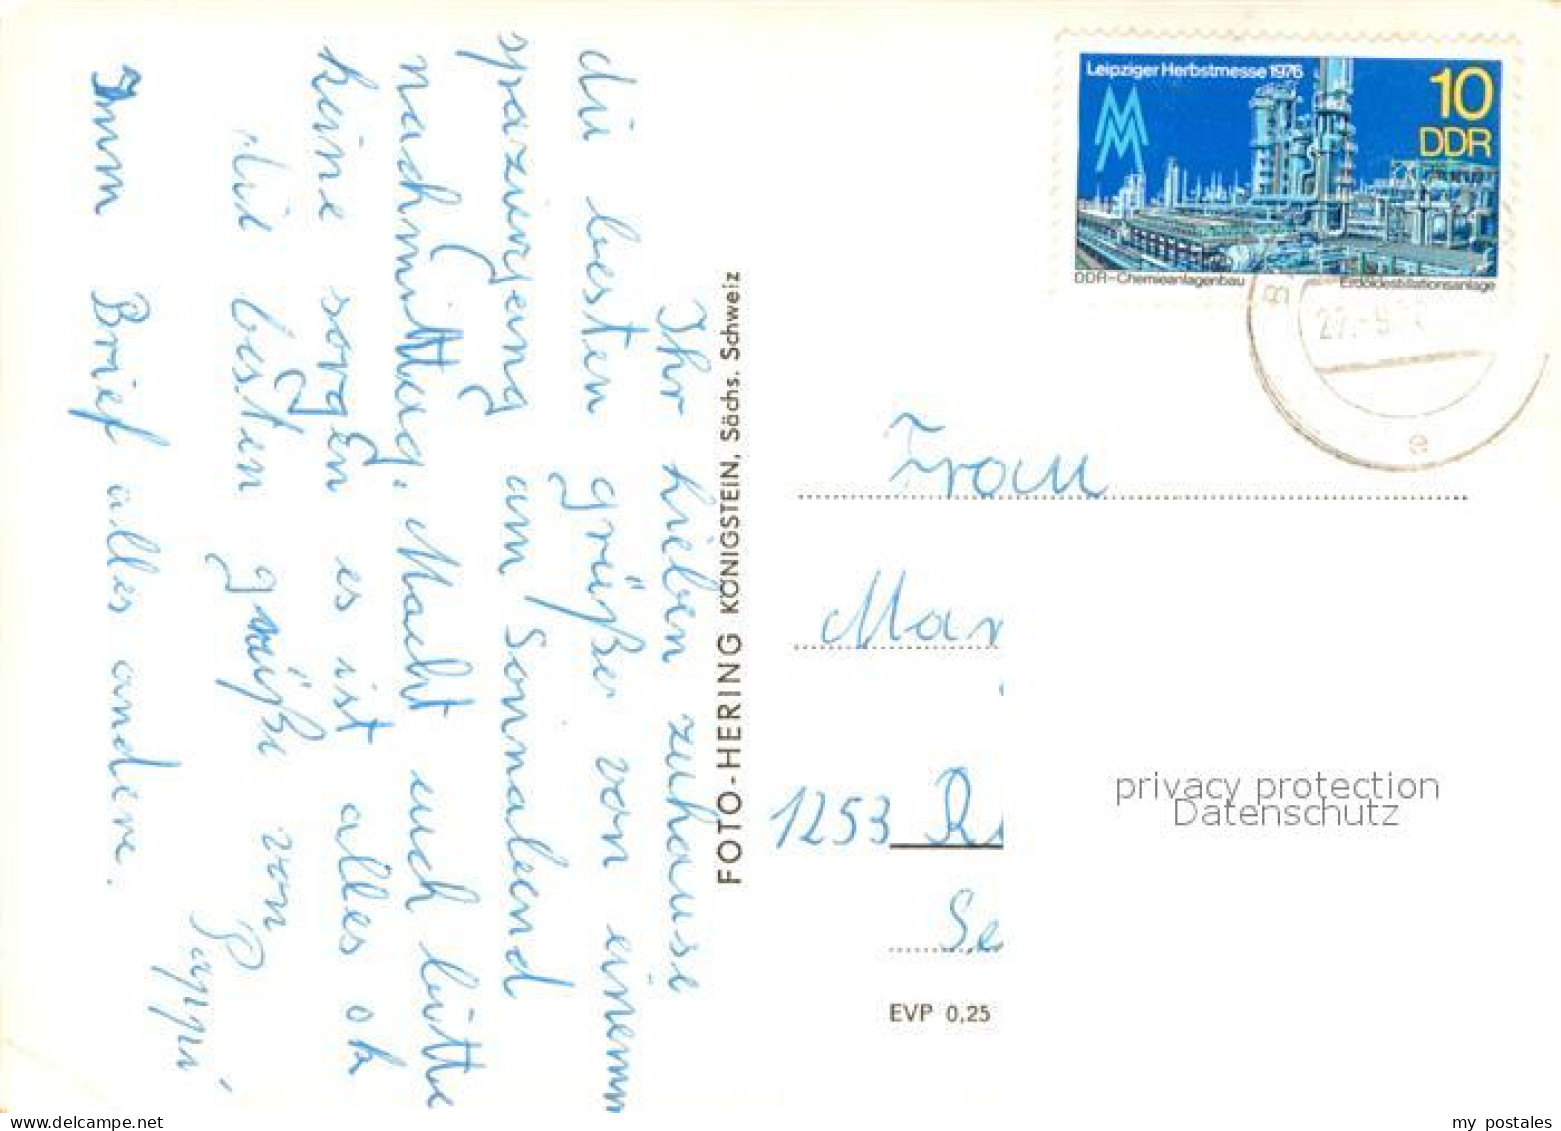 Ihr Lieben zuhause
die besten grüße von einem
spaziergang am Sonnabend
nachmittag. Macht euch bitte
keine sorgen es ist alles ok
die besten grüße von
Pappi
Imm Brief alles andere.
FOTO-HERING KÖNIGSTEIN, Sächs. Schweiz
Leipziger Herbstmesse 1976
10
DDR
DDR-Chemieanlagenbau
Erdöldestillationsanlage
Frau
Mar
1253
Se
EVP 0,25
privacy protection
Datenschutz
my postales